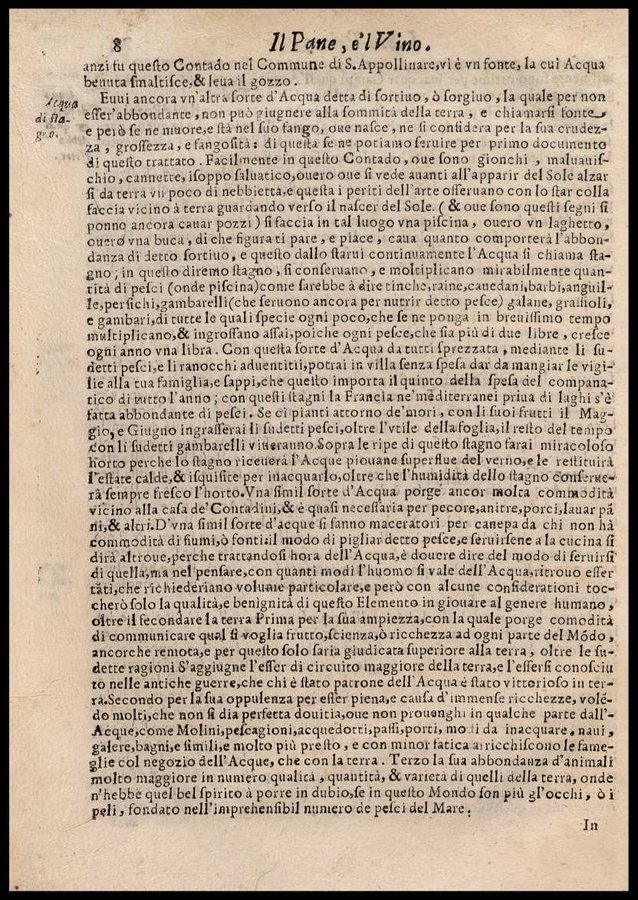 8
Il Pane, e'l Vino.
anzi fu questo Contado nel Commune di S. Appollinare, vi è vn fonte, la cui Acqua
beuuta smaltisce, & leua il gozzo.
Acqua
di sta-
gno.
Euui ancora vn'altra sorte d'Acqua detta di sortiuo, ò sorgiuo, la quale per non
esser'abbondante, non può giugnere alla sommità della terra, e chiamarsi fonte
e però se ne muore, e stà nel suo fango, oue nasce, ne si considera per la sua crudez-
za, grossezza, e fangosità: di questa se ne potiamo seruire per primo documento
di questo trattato. Facilmente in questo Contado, oue sono gionchi, maluauis-
chio, cannette, isoppo saluatico, ouero oue si vede auanti all'apparir del Sole alzar
si da terra vn poco di nebbietta, e questa i periti dell'arte osseruano con lo star colla
faccia vicino à terra guardando verso il nascer del Sole. (& oue sono questi segni si
ponno ancora cauar pozzi) si faccia in tal luogo vna piscina, ouero vn laghetto,
ouero vna buca, di che figura ti pare, e piace, caua quanto comporterà l'abbon-
danza di detto sortiuo, e questo dallo starui continuamente l'Acqua si chiama sta-
gno; in questo diremo stagno, si conseruano, e moltiplicano mirabilmente quan-
tità di pesci (onde piscina) come sarebbe à dire tinche, raine, cauedani, barbi, anguil-
le, persichi, gambarelli (che seruono ancora per nutrir detto pesce) galane, grassioli,
e gambari, di tutte le quali specie ogni poco, che se ne ponga in breuissimo tempo
multiplicano, & ingrossano assai, poiche ogni pesce, che sia più di due libre, cresce
ogni anno vna libra. Con questa sorte d'Acqua da tutti sprezzata, mediante li su-
detti pesci, e li ranocchi aduentitii, potrai in villa senza spesa dar da mangiar le vigi-
lie alla tua famiglia, e sappi, che questo importa il quinto della spesa del compana-
tico di tutto l'anno; con questi stagni la Francia ne'mediterranei priua di laghi s'è
fatta abbondante di pesci. Se ci pianti attorno de'mori, con li suoi frutti il Mag-
gio, e Giugno ingrasserai li sudetti pesci, oltre l'vtile della foglia, il resto del tempo
con li sudetti gambarelli viueranno. Sopra le ripe di questo stagno farai miracoloso
horto perche lo stagno riceuerà l'Acque piouane superflue del verno, e le restituirà
l'estate calde, & isquisite per inacquarlo, oltre che l'humidità dello stagno conserue-
rà sempre fresco l'horto. Vna simil sorte d'Acqua porge ancor molta commodità
vicino alla casa de'Contadini, & è quasi necessaria per pecore, anitre, porci, lauar pa
ni, & altri. D'vna simil sorte d'acque si fanno maceratori per canepa da chi non hà
commodità di fiumi, ò fonti: il modo di pigliar detto pesce, e seruirsene a la cucina si
dirà altroue, perche trattandosi hora dell'Acqua, è douere dire del modo di seruirsi
di quella, ma nel pensare, con quanti modi l'huomo si vale dell'Acqua, ritrouo esser
tāti, che richiederiano volume particolare, e però con alcune considerationi toc-
cherò solo la qualità, e benignità di questo Elemento in giouare al genere humano,
oltre il secondare la terra Prima per la sua ampiezza, con la quale porge comodità
di communicare qual si voglia frutto, scienza, ò ricchezza ad ogni parte del Módo,
ancorche remota, e per questo solo saria giudicata superiore alla terra, oltre le su-
dette ragioni S'aggiugne l'esser di circuito maggiore della terra, e l'essersi conosciu
to nelle antiche guerre, che chi è stato patrone dell'Acqua è stato vittorioso in ter-
ra. Secondo per la sua oppulenza per esser piena, e causa d'immense ricchezze, volé-
do molti, che non si dia perfetta douitia, oue non prouenghi in qualche parte dall'-
Acque, come Molini, pescagioni, acquedotti, passi, porti, modi da inacquare, naui,
galere, bagni, e simili, e molto più presto, e con minor fatica arricchiscono le fame-
glie col negozio dell'Acque, che con la terra. Terzo la sua abbondanza d'animali
molto maggiore in numero qualità, quantità, & varietà di quelli della terra, onde
n'hebbe quel bel spirito à porre in dubio, se in questo Mondo son più gl'occhi, ò i
peli, fondato nell'imprehensibil numero de pesci del Mare.
In